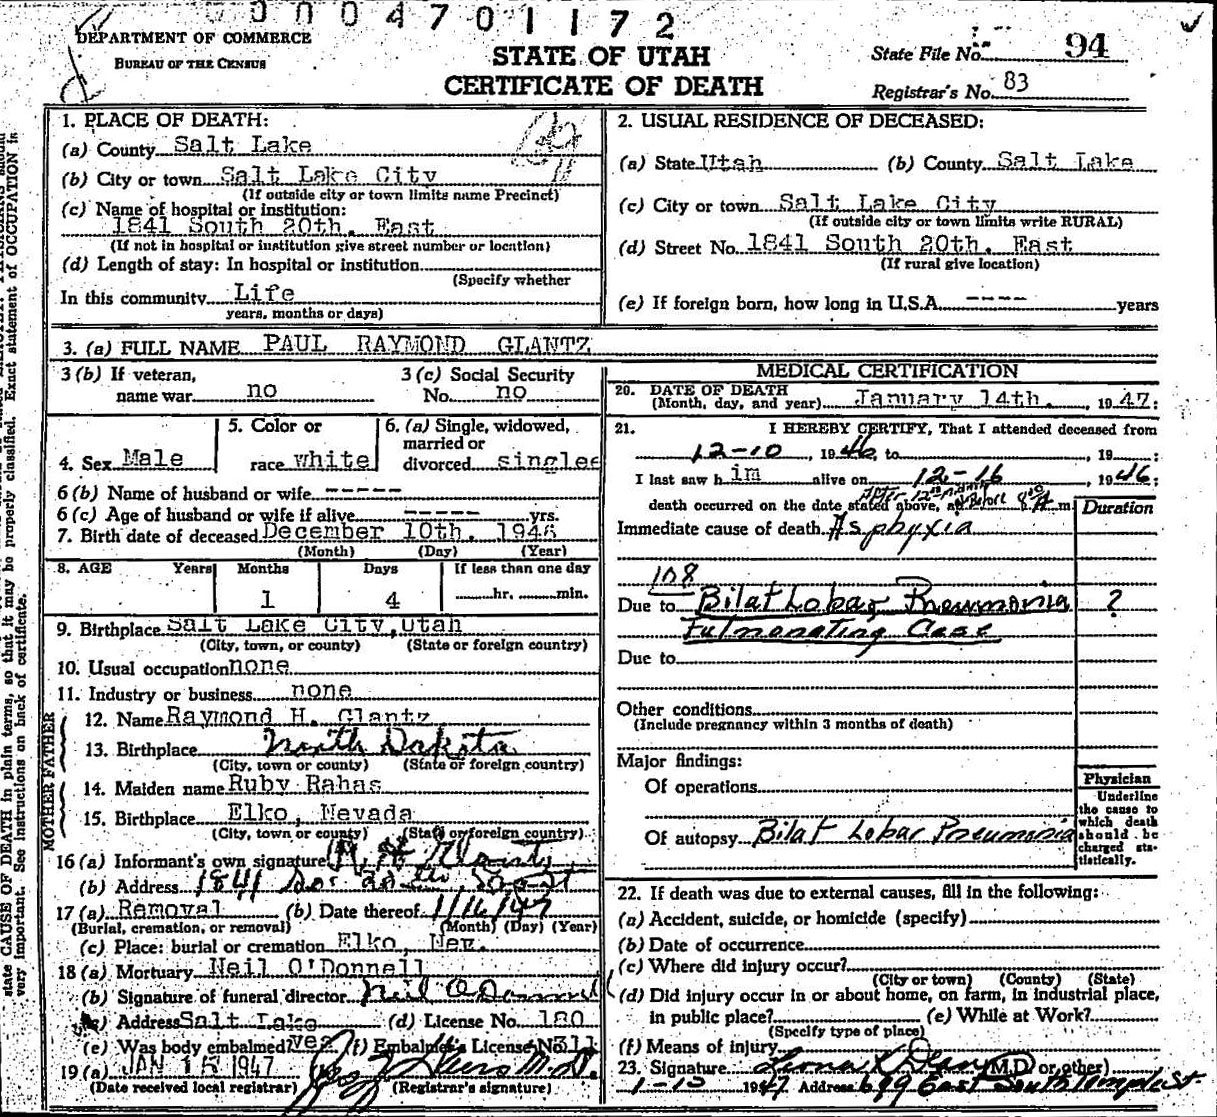 0004701172
DEPARTMENT OF COMMERCE
BUREAU OF THE CENSUS
STATE OF UTAH
CERTIFICATE OF DEATH
State File No. 94
Registrar's No. 83
1. PLACE OF DEATH:
(a) County Salt Lake
(b) City or town Salt Lake City
(If outside city or town limits name Precinct)
(c) Name of hospital or institution:
1841 South 20th. East
(If not in hospital or institution give street number or location)
(d) Length of stay: In hospital or institution
(Specify whether
In this community Life
years, months or days)
2. USUAL RESIDENCE OF DECEASED:
(a) State Utah (b) County Salt Lake
(c) City or town Salt Lake City
(If outside city or town limits write RURAL)
(d) Street No. 1841 South 20th. East
(If rural give location)
(e) If foreign born, how long in U.S.A. ---- years
3. (a) FULL NAME PAUL RAYMOND GLANTZ
3 (b) If veteran, name war no
3 (c) Social Security No. no
4. Sex Male
5. Color or race white
6. (a) Single, widowed, married or divorced singlee
6 (b) Name of husband or wife -----
6 (c) Age of husband or wife if alive ----- yrs.
7. Birth date of deceased December 10th. 1946
(Month) (Day) (Year)
8. AGE Years Months Days If less than one day
1 4 hr. min.
9. Birthplace Salt Lake City, Utah
(City, town, or county) (State or foreign country)
10. Usual occupation none
11. Industry or business none
FATHER
12. Name Raymond H. Glantz
13. Birthplace North Dakota
(City, town or county) (State or foreign country)
MOTHER
14. Maiden name Ruby Rahas
15. Birthplace Elko, Nevada
(City, town or county) (State or foreign country)
16 (a) Informant's own signature R. H. Glantz
(b) Address 1841 So. 20th East
17 (a) Removal (b) Date thereof 1/16/47
(Burial, cremation, or removal) (Month) (Day) (Year)
(c) Place: burial or cremation Elko, Nev.
18 (a) Mortuary Neil O'Donnell
(b) Signature of funeral director Neil O'Donnell
(c) Address Salt Lake (d) License No. 180
(e) Was body embalmed yes (f) Embalmer's License No. 311
19 (a) JAN 15 1947 M.D.
(Date received local registrar) (Registrar's signature)
MEDICAL CERTIFICATION
20. DATE OF DEATH
(Month, day, and year) January 14th. , 1947:
21. I HEREBY CERTIFY, That I attended deceased from
12-10, 1946, to , 19 ;
I last saw him alive on 12-16, 1946;
After 12 midnight
death occurred on the date stated above, at Before 8 A m.
Duration
Immediate cause of death Asphyxia
108
Due to Bilat Lobar Pneumonia ?
Fulmonating Case
Due to
Other conditions
(Include pregnancy within 3 months of death)
Major findings:
Of operations
Of autopsy Bilat Lobar Pneumonia
Physician
Underline the cause to which death should be charged statistically.
22. If death was due to external causes, fill in the following:
(a) Accident, suicide, or homicide (specify)
(b) Date of occurrence
(c) Where did injury occur?
(City or town) (County) (State)
(d) Did injury occur in or about home, on farm, in industrial place,
in public place? (e) While at Work?
(Specify type of place)
(f) Means of injury
23. Signature (M.D. or other)
1-15 1947 Address 699 East South Temple St
state CAUSE OF DEATH in plain terms, so that it may be properly classified. Exact statement of OCCUPATION is
very important. See instructions on back of certificate.